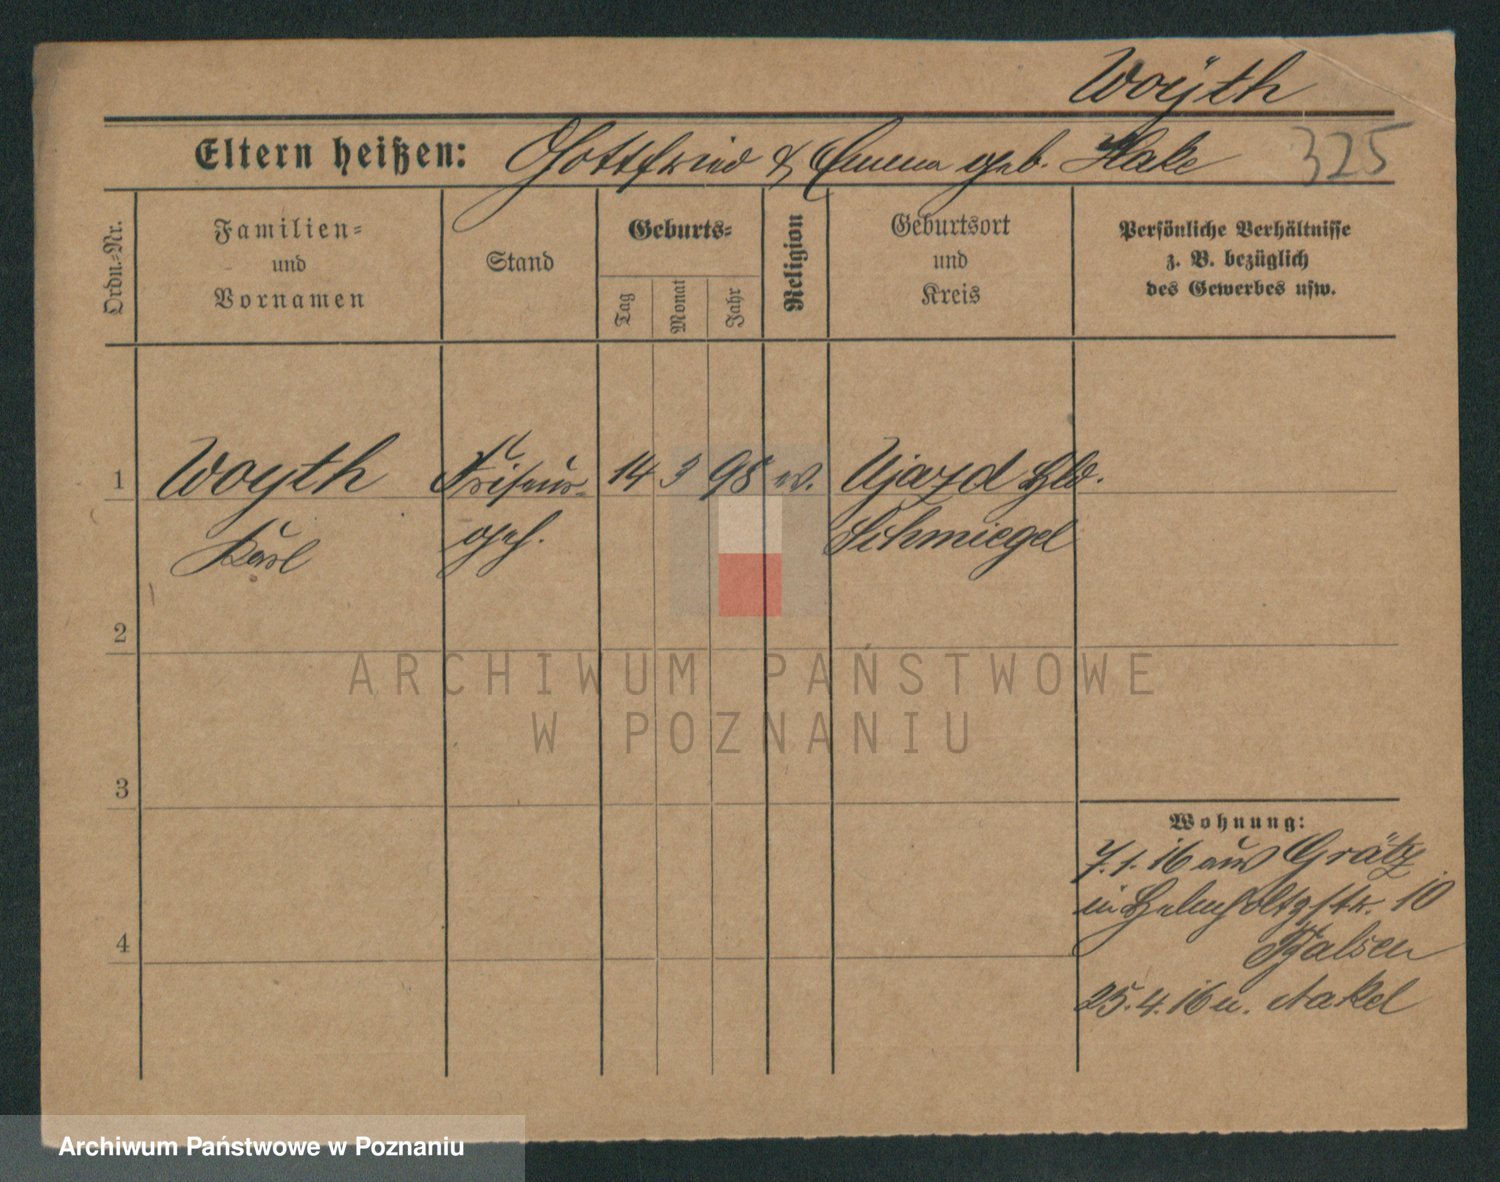 Woyth
Eltern heißen: Gottfried & Emma geb. Hake 325
Ordn.-Nr.
Familien-
und
Vornamen
Stand
Geburts-
Tag
Monat
Jahr
Religion
Geburtsort
und
Kreis
Persönliche Verhältnisse
z. B. bezüglich
des Gewerbes usw.
1 Woyth Friseur- 14 3 98 ev. Ujazd Hld.
Karl geh. Schmiegel
2
3
4
Wohnung:
7.1.16 aus Grätz
in Helmholtzstr. 10
25.4.16 n. Nakel
ARCHIWUM PAŃSTWOWE
W POZNANIU
Archiwum Państwowe w Poznaniu